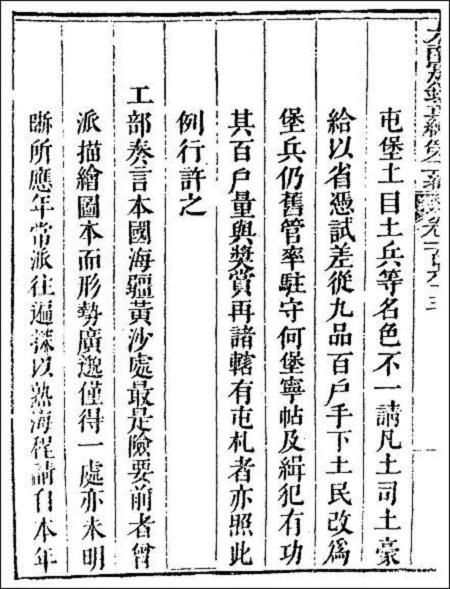 屯堡土目土兵等名色不一請凡土司土豪
給以省憑試差從九品百戶手下土民改爲
堡兵仍舊管率駐守何堡寧帖及緝犯有功
其百戶量與奬賞再諸轄有屯札者亦照此
例行許之
工部奏言本國海疆黃沙處最是險要前者曾
派描繪圖本而形勢廣邈僅得一處亦未明
晰所應年常派往遍探以熟海程請自本年